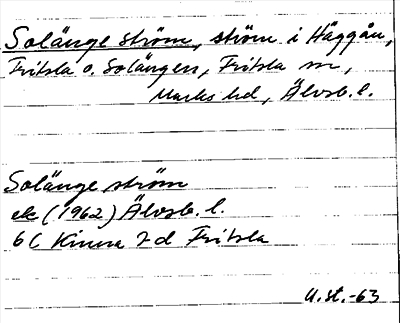 Solänge ström, ström i Häggån,
Fritsla o. Solängen, Fritsla sn,
Marks hd, Älvsb. l.
Solänge ström
ek (1962) Älvsb. l.
6C Kinna 7d Fritsla
U.st.-63